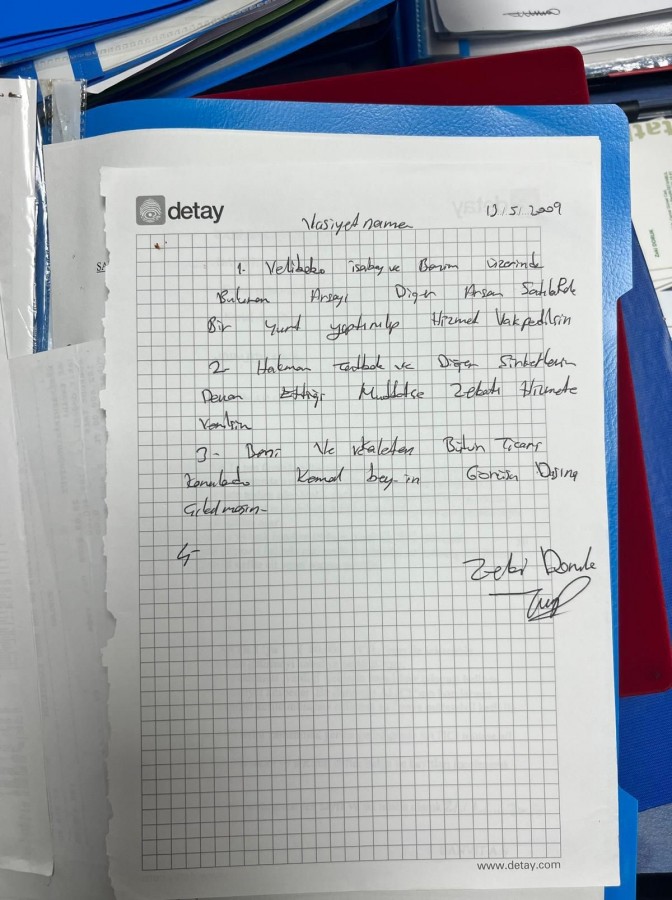 detay
Vasiyetname
1. Velibaba isabey ve Benim üzerinde
Bulunan Arsayı Diğer Arsan
Bir yurt yaptırılıp Hizmet Vakfedilsin
2 ve Diğer Sirketlerin
Devam Ettiği Muddetçe Zekatı Hizmete
Verilsin
3- Beni Ve vekaleten Bütün Ticari
Konularda Kemal bey-in Görüsü Dışına
4-
Zeki
www.detay.com